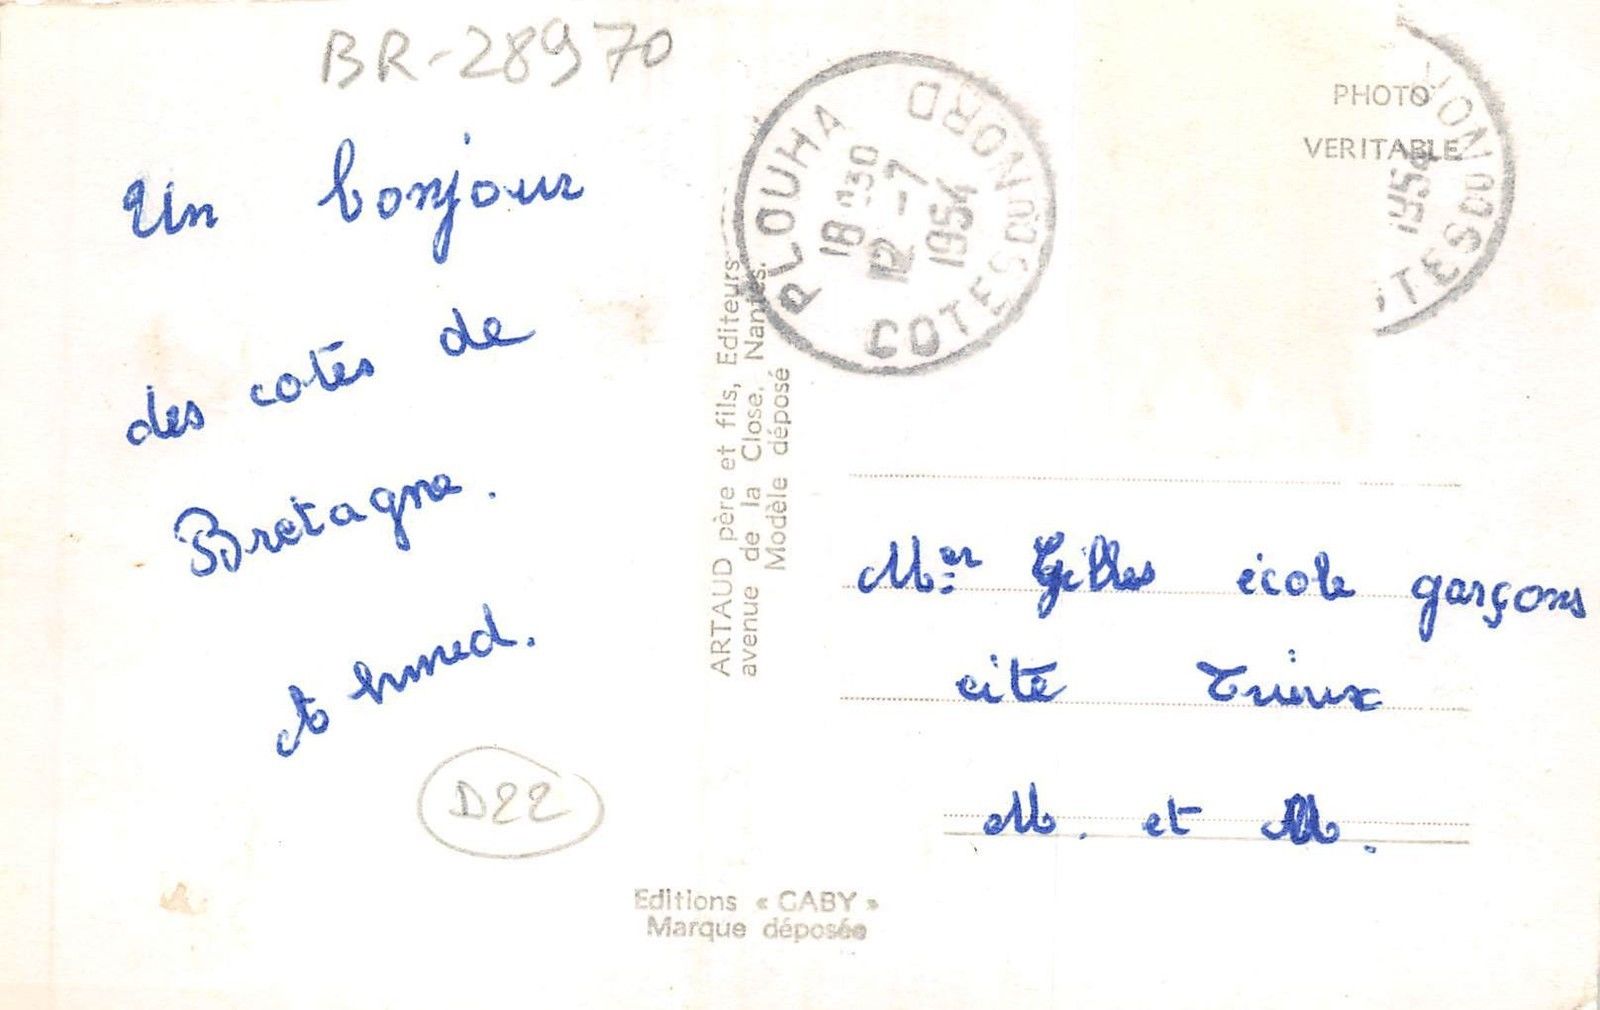 BR-28970
Un bonjour
des cotes de
Bretagne.
Ahmed.
D22
Editions « GABY »
Marque déposée
ARTAUD père et fils, Editeurs
avenue de la Close, Nantes.
Modèle déposé
PLOUHA
COTES DU NORD
18 H30
12 -7
1954
PHOTO
VERITABLE
1954
TES DU NOR
Mer Gilles école garçons
cité Trieux
M. et M.